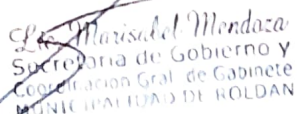 Lic. Marisabel Mendoza
Secretaria de Gobierno y
Coordinacion Gral de Gabinete
MUNICIPALIDAD DE ROLDAN